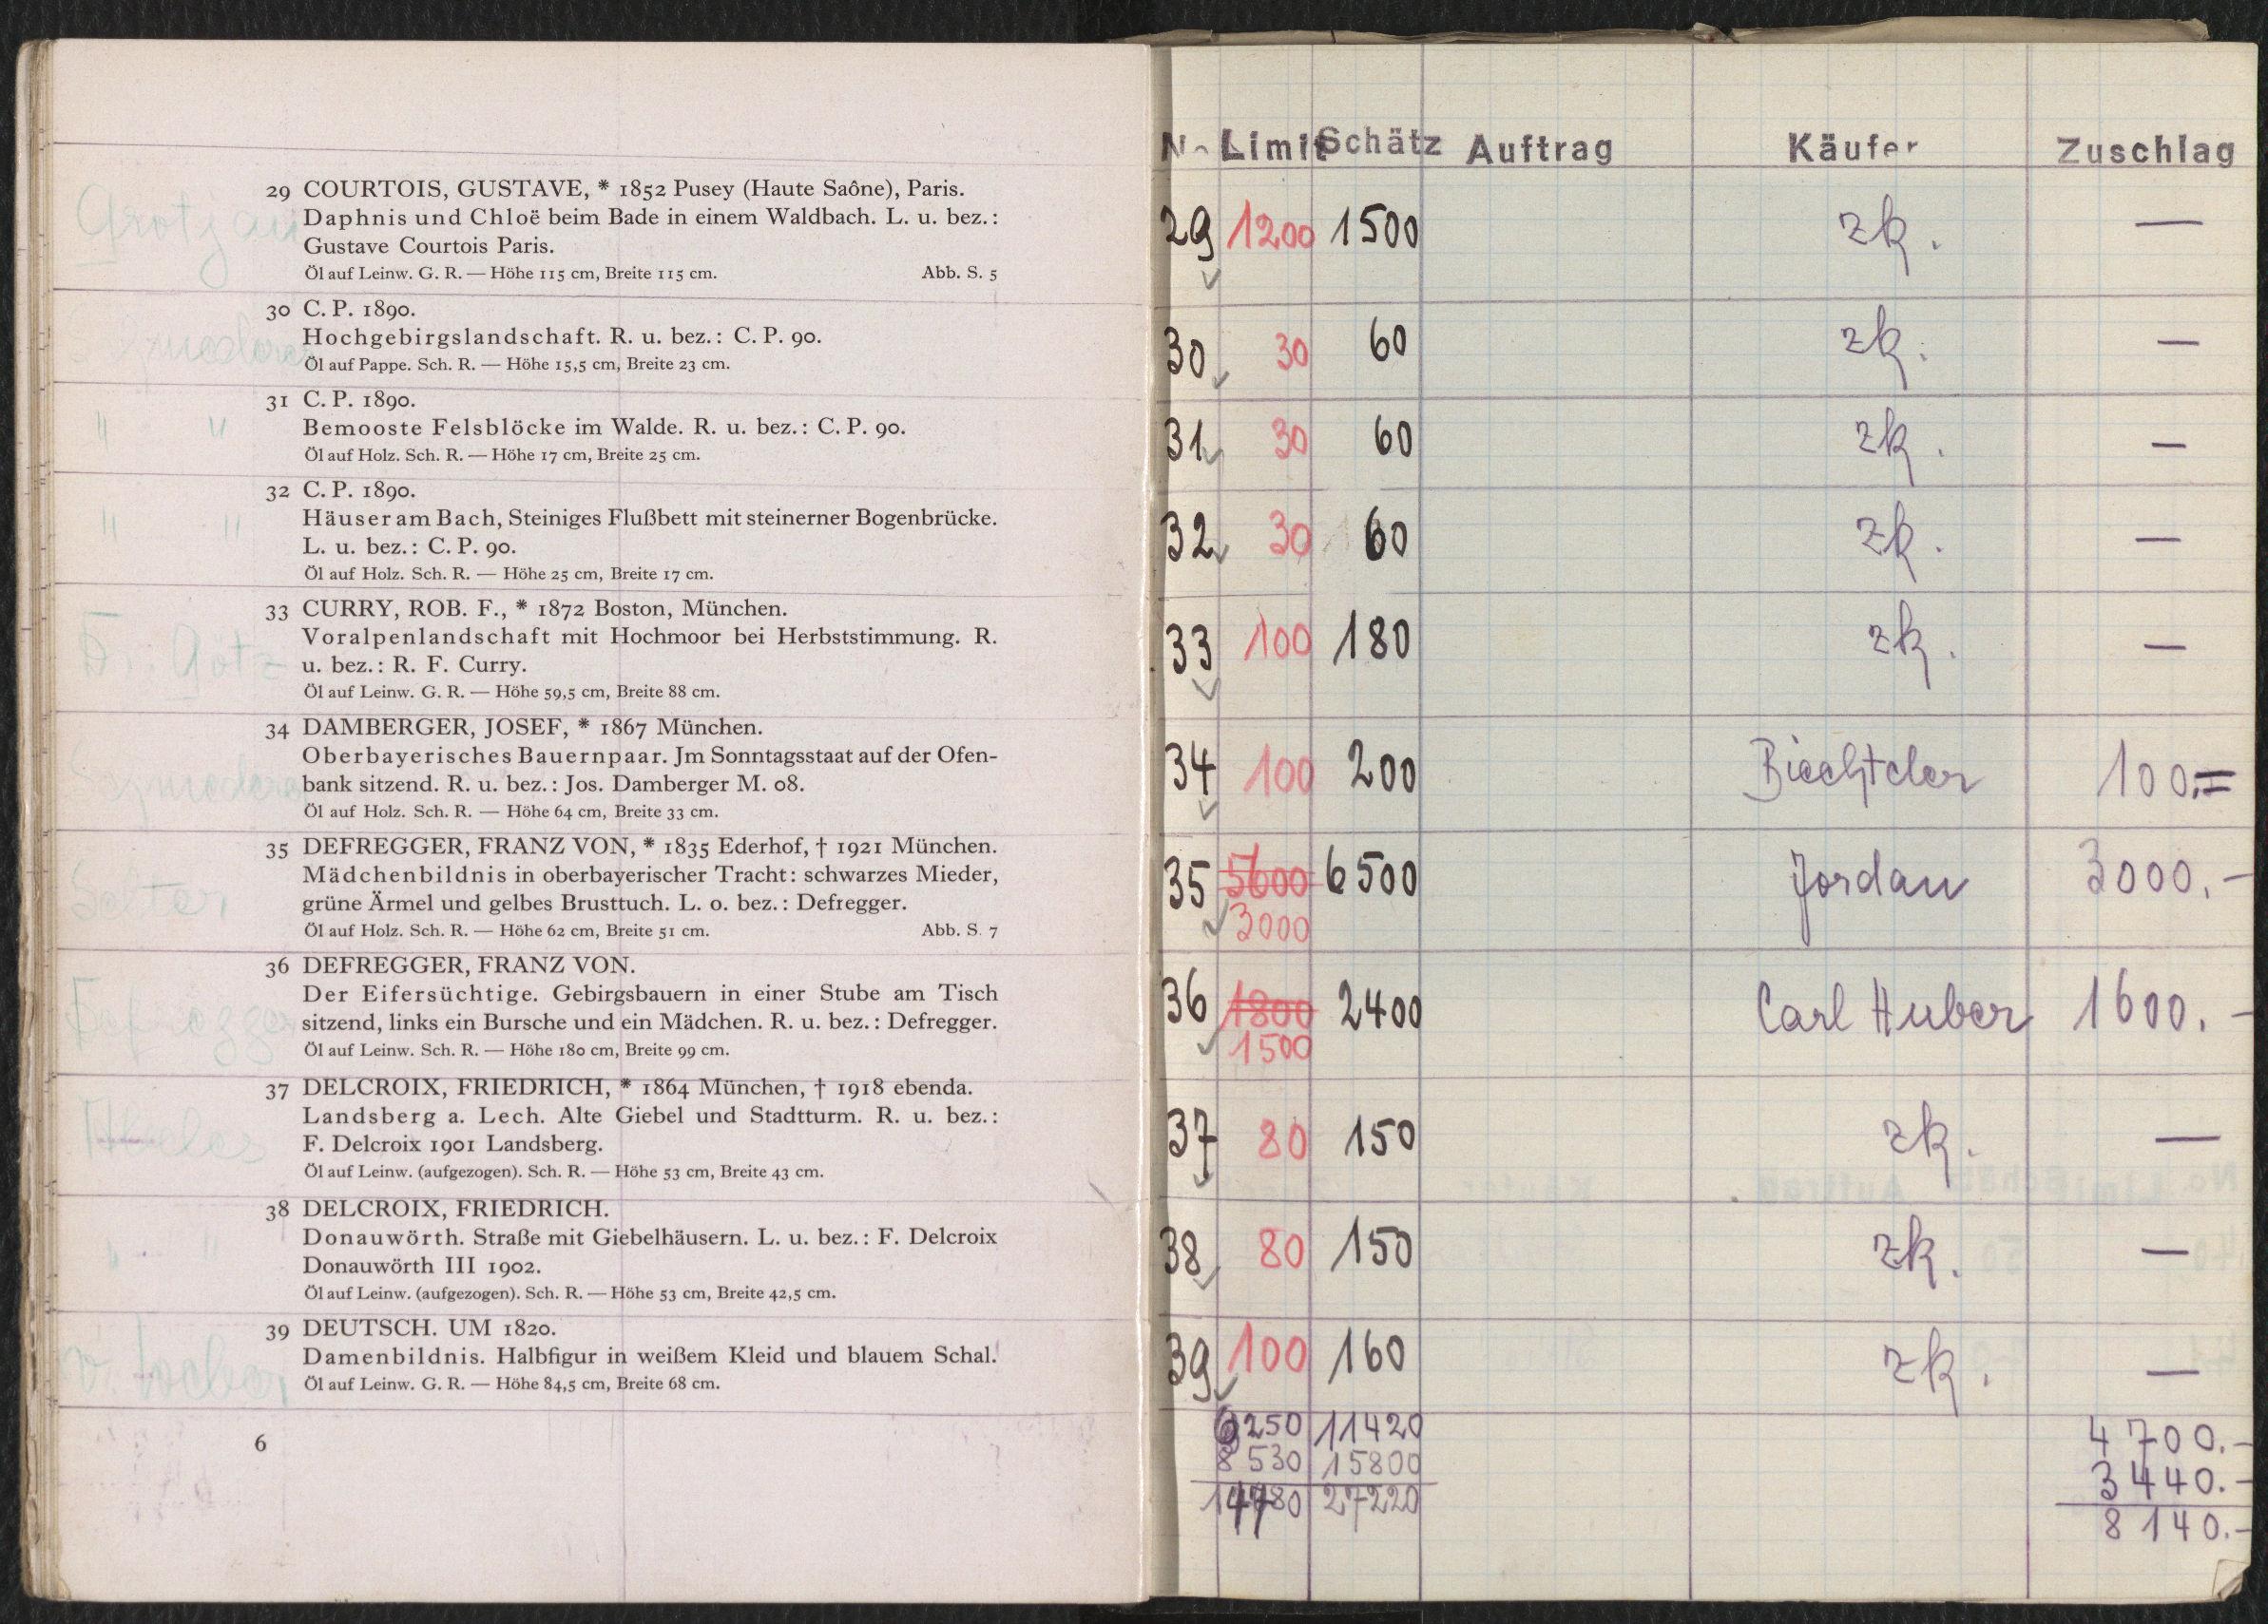 29 COURTOIS, GUSTAVE, * 1852 Pusey (Haute Saône), Paris.
Daphnis und Chloë beim Bade in einem Waldbach. L. u. bez.:
Gustave Courtois Paris.
Öl auf Leinw. G. R. — Höhe 115 cm, Breite 115 cm. Abb. S. 5
30 C. P. 1890.
Hochgebirgslandschaft. R. u. bez.: C. P. 90.
Öl auf Pappe. Sch. R. — Höhe 15,5 cm, Breite 23 cm.
" " 31 C. P. 1890.
Bemooste Felsblöcke im Walde. R. u. bez.: C. P. 90.
Öl auf Holz. Sch. R. — Höhe 17 cm, Breite 25 cm.
" " 32 C. P. 1890.
Häuser am Bach, Steiniges Flußbett mit steinerner Bogenbrücke.
L. u. bez.: C. P. 90.
Öl auf Holz. Sch. R. — Höhe 25 cm, Breite 17 cm.
33 CURRY, ROB. F., * 1872 Boston, München.
Götz Voralpenlandschaft mit Hochmoor bei Herbststimmung. R.
u. bez.: R. F. Curry.
Öl auf Leinw. G. R. — Höhe 59,5 cm, Breite 88 cm.
34 DAMBERGER, JOSEF, * 1867 München.
Oberbayerisches Bauernpaar. Jm Sonntagsstaat auf der Ofen-
bank sitzend. R. u. bez.: Jos. Damberger M. 08.
Öl auf Holz. Sch. R. — Höhe 64 cm, Breite 33 cm.
35 DEFREGGER, FRANZ VON, * 1835 Ederhof, † 1921 München.
Mädchenbildnis in oberbayerischer Tracht: schwarzes Mieder,
grüne Ärmel und gelbes Brusttuch. L. o. bez.: Defregger.
Öl auf Holz. Sch. R. — Höhe 62 cm, Breite 51 cm. Abb. S. 7
36 DEFREGGER, FRANZ VON.
Defregger Der Eifersüchtige. Gebirgsbauern in einer Stube am Tisch
sitzend, links ein Bursche und ein Mädchen. R. u. bez.: Defregger.
Öl auf Leinw. Sch. R. — Höhe 180 cm, Breite 99 cm.
37 DELCROIX, FRIEDRICH, * 1864 München, † 1918 ebenda.
Landsberg a. Lech. Alte Giebel und Stadtturm. R. u. bez.:
F. Delcroix 1901 Landsberg.
Öl auf Leinw. (aufgezogen). Sch. R. — Höhe 53 cm, Breite 43 cm.
" " 38 DELCROIX, FRIEDRICH.
Donauwörth. Straße mit Giebelhäusern. L. u. bez.: F. Delcroix
Donauwörth III 1902.
Öl auf Leinw. (aufgezogen). Sch. R. — Höhe 53 cm, Breite 42,5 cm.
39 DEUTSCH. UM 1820.
Damenbildnis. Halbfigur in weißem Kleid und blauem Schal.
Öl auf Leinw. G. R. — Höhe 84,5 cm, Breite 68 cm.
6
No Limit Schätz Auftrag Käufer Zuschlag
29 1200 1500 zk. —
30 30 60 zk. —
31 30 60 zk. —
32 30 60 zk. —
33 100 180 zk. —
34 100 200 100.=
35 5600 6500 Jordan 3000.-
3000
36 1800 2400 Carl Huber 1600.-
1500
37 80 150 zk. —
38 80 150 zk. —
39 100 160 zk. —
6250 11420 4700.-
8530 15800 3440.-
14780 27220 8140.-